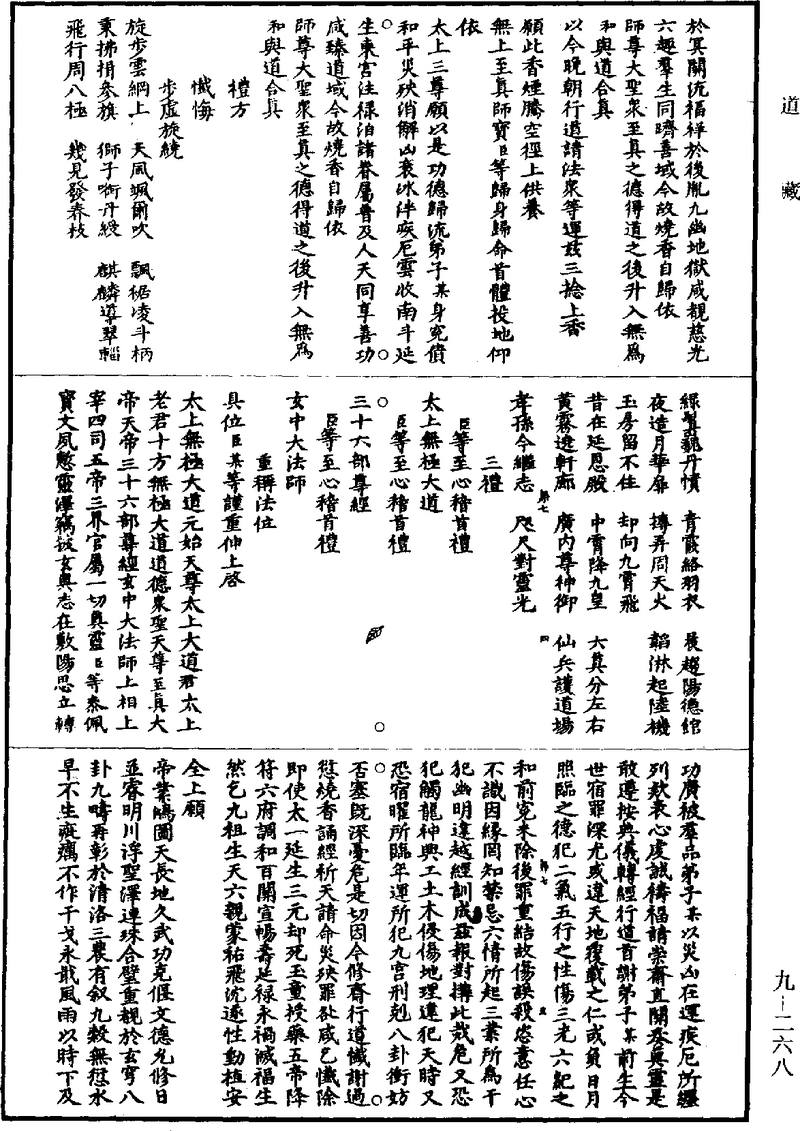 道藏
於冥關流福祥於後胤九幽地獄咸覩慈光
六趣羣生同躋善域今故燒香自歸依
師尊大聖衆至真之德得道之後升入無為
和與道合真
以今晚朝行道請法衆等運茲三捻上香
願此香煙騰空徑上供養
無上至真師寶臣等歸身歸命首體投地仰
依
太上三尊願以是功德歸流弟子某身冤債
和平災殃消解凶衰冰泮疾厄雲收南斗延
生東宫注祿洎諸眷屬普及人天同享善功
咸臻道域今故燒香自歸依
師尊大聖衆至真之德得道之後升入無為
和與道合真
禮方
懺悔
步虛旋繞
旋步雲綱上 天風颯爾吹 飄裾凌斗柄
秉拂揖參旗 獅子銜丹綬 麒麟導翠輜
飛行周八極 幾見發春枝
綠鬢巍丹幘 青霞絡羽衣 晨趨陽德館
夜造月華扉 摶弄周天火 韜淋起陸機
玉房留不住 却向九霄飛
昔在延恩殿 中霄降九皇 六真分左右
黄霧遶軒廊 廣内尊神御 仙兵護道場
孝孫今繼志 咫尺對靈光
第七 四
三禮
臣等至心稽首禮
太上無極大道
臣等至心稽首禮
三十六部尊經
臣等至心稽首禮
玄中大法師
重稱法位
具位臣某等謹重伸上啓
太上無極大道元始天尊太上大道君太上
老君十方無極大道道德衆聖天尊至真大
帝天帝三十六部尊經玄中大法師上相上
宰四司五帝三界官屬一切真靈臣等忝佩
寶文夙慙靈澤竊披玄奥志在敷陽思立轉
功廣被羣品弟子某以災凶在運疾厄所纒
列欵衷心虔誠禱福請崇齋直關奏真靈是
敢遵按典儀轉經行道首謝弟子某前生今
世宿罪深尤或違天地覆載之仁或負日月
照臨之德犯二氣五行之性傷三光六紀之
和前冤未除後罪重結故傷誤殺恣意任心
第七 五
不識因緣罔知禁忌六情所起三業所為干
犯幽明違越經訓咸茲報對搆此災危又恐
犯觸龍神興工土木侵傷地理違犯天時又
恐宿曜所臨年運所犯九宫刑剋八卦衝妨
否塞既深憂危是切因今修齋行道懺謝過
愆燒香誦經祈天請命災殃罪咎咸乞懺除
即使太一延生三元却死玉童授藥五帝降
符六府調和百關宣暢壽延祿永禍滅福生
然乞九祖生天六親蒙祐飛沉遂性動植安
全上願
帝業鴻圖天長地久武功克偃文德允修日
並睿明川浮聖澤連珠合璧重覩於玄穹八
卦九疇再彰於清洛三農有叙九穀無愆水
旱不生疵癘不作干戈永戢風雨以時下及
九－二六八